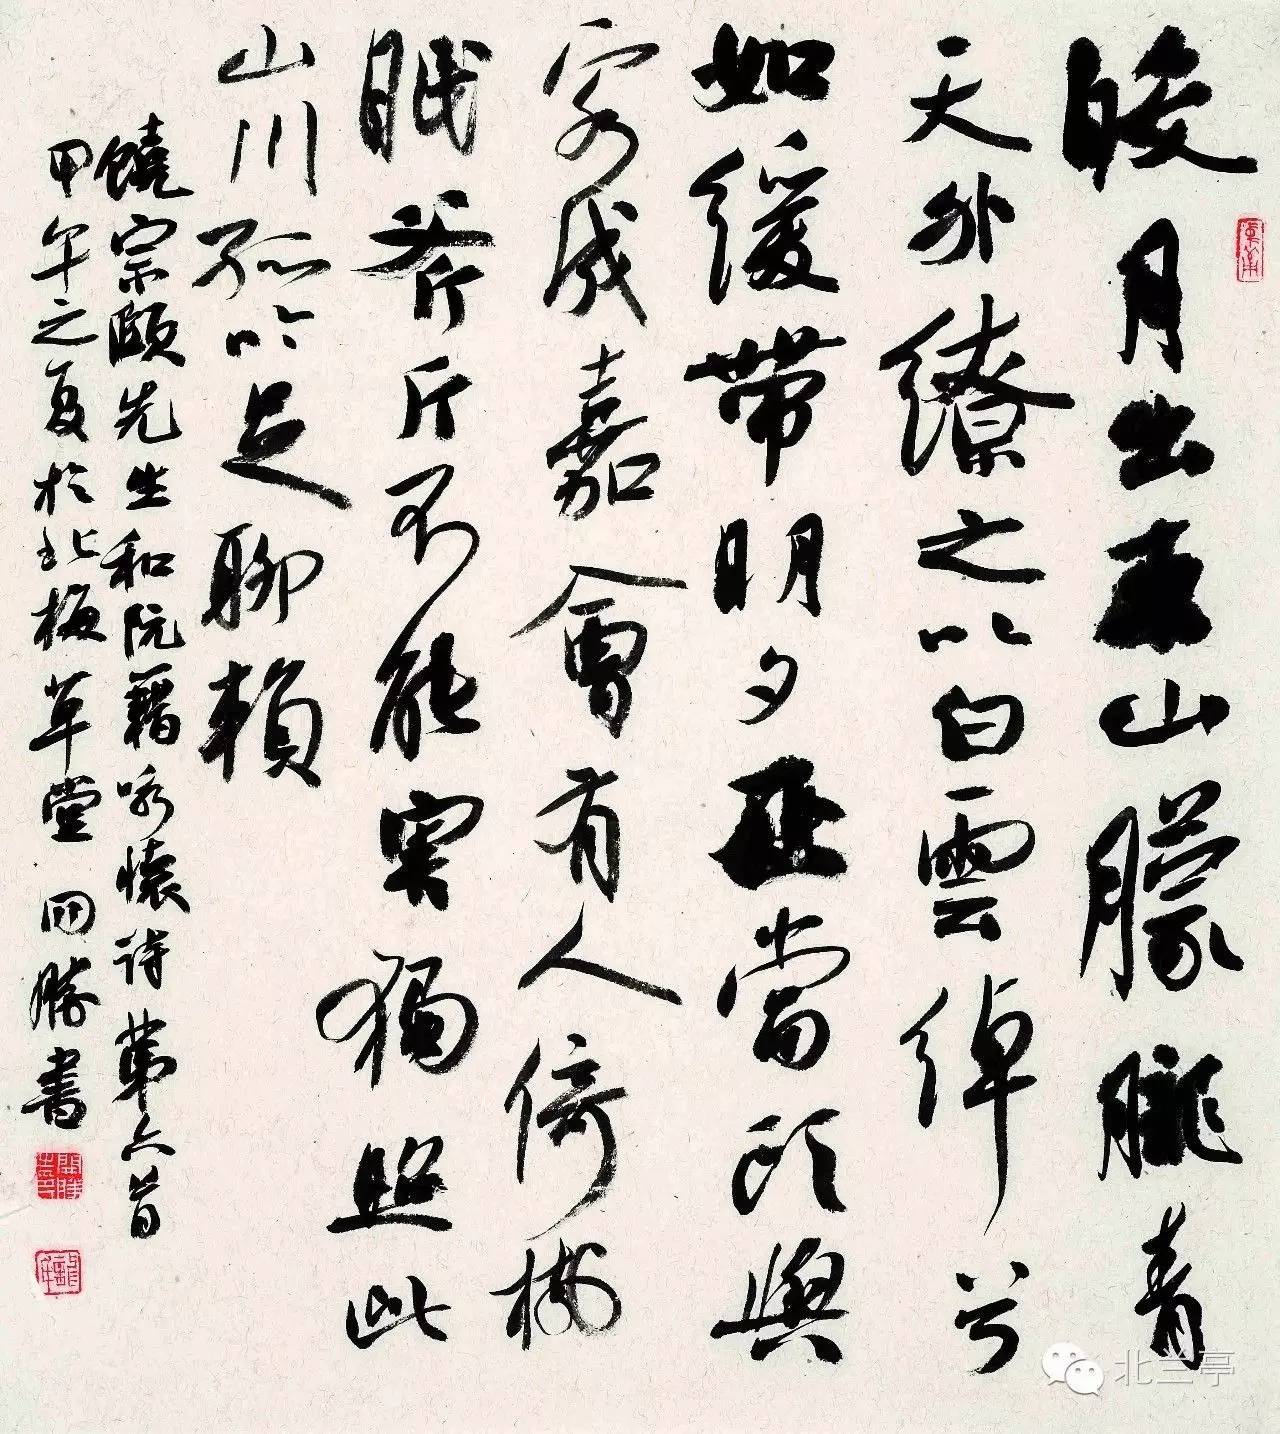 皎月出東山朦朧青
天外繚之以白雲綽兮
如緩帶明夕更當頭與
客成嘉會有人倚樓
眠斧斤不能害獨照此
山川孤吟足聊賴
饒宗頤先生和阮籍咏懷詩第六首
甲午之夏於北梅草堂開勝書
北兰亭